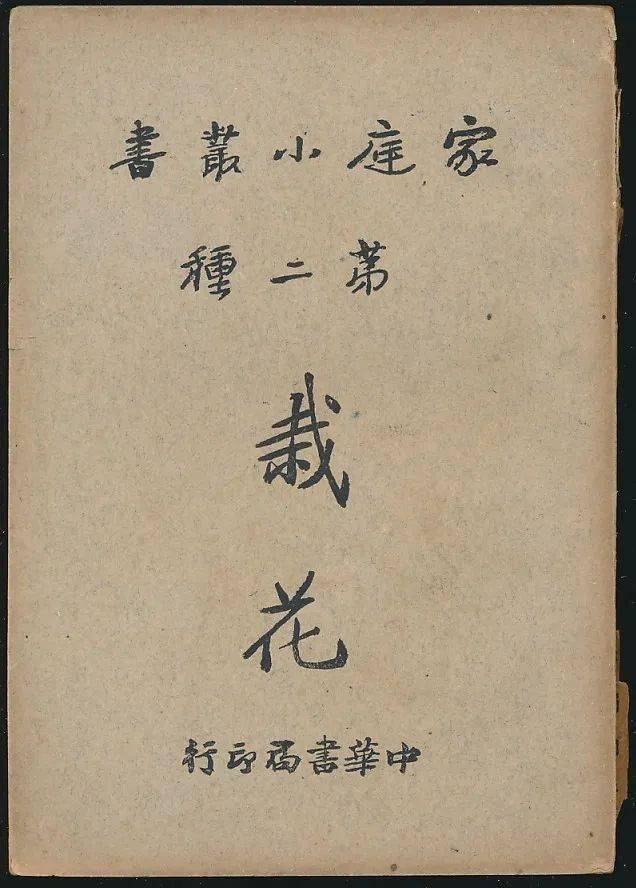 家庭小叢書
第二種
栽花
中華書局印行